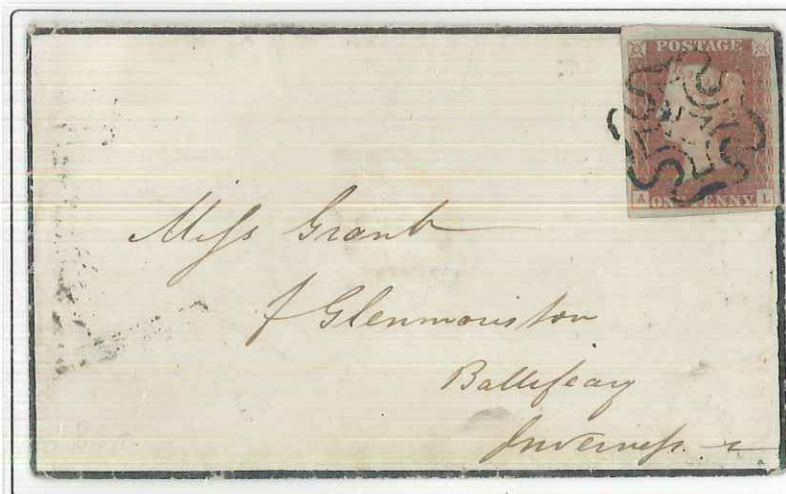 POSTAGE
A ONE PENNY L
Miss Grant
of Glenmoriston
Ballifeary
Inverness